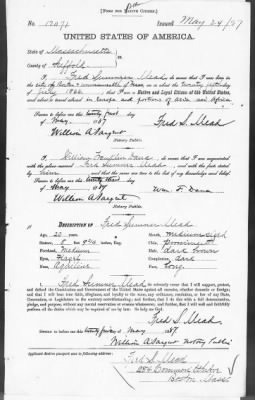 [FORM FOR NATIVE CITIZEN.]
No. 12071 Issued May 24 / 87
UNITED STATES OF AMERICA.
State of Massachusetts
County of Suffolk
I, Fred Sumner Mead, do swear that I was born in
the city of Boston & commonwealth of
of July 1866
is a Native and Loyal Citizen of the United States,
and about to travel abroad in Europe and portions of Asia and Africa
Sworn to before me this twenty first day
of May, 1887 Fred S. Mead
William A Sargent
Notary Public.
I, William Franklin Dana, do swear that I am acquainted
with the above-named Fred Sumner Mead, and with the facts stated
by him, and that the same are true to the best of my knowledge and belief.
Sworn to before me this day
of May 1887 Wm. F. Dana
William A Sargent
Notary Public.
DESCRIPTION OF Fred Sumner Mead
Age: 20
Stature: 5 feet inches, Eng.
Forehead: Medium
Eyes: Hazel
Nose: Aquiline
Mouth: medium sized
Chin: prominent
Hair: dark brown
Complexion: dark
Face: long
I, Fred Sumner Mead, do solemnly swear that I will support, protect, and defend the Constitution and Government of the United States against all enemies, whether domestic or foreign; and that I will bear true faith, allegiance, and loyalty to the same, any ordinance, resolution, or law of any State, Convention, or Legislature to the contrary notwithstanding; and further, that I do this with a full determination, pledge, and purpose, without any mental reservation or evasion whatsoever; and further, that I will well and faithfully perform all the duties which may be required of me by law. So help me God.
Fred S. Mead
Sworn to before me this twenty first day of May 1887
William A Sargent Notary Public
Applicant desires passport sent to following address:
Fred S. Mead
284 Commonwealth Av
Boston Mass